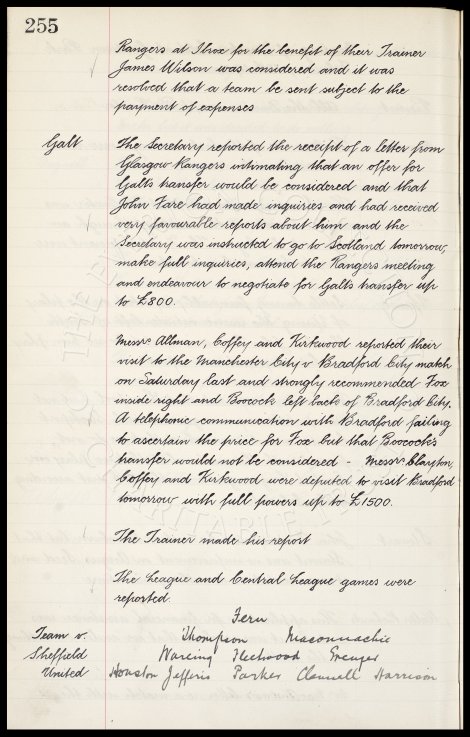 255
Rangers at Ibrox for the benefit of their Trainer
James Wilson was considered and it was
resolved that a team be sent subject to the
payment of expenses
Galt
The Secretary reported the receipt of a letter from
Glasgow Rangers intimating that an offer for
Galts transfer would be considered and that
John Fare had made inquiries and had received
very favourable reports about him and the
Secretary was instructed to go to Scotland tomorrow,
make full inquiries, attend the Rangers meeting
and endeavour to negotiate for Galts transfer up
to £800.
Messrs Allman, Coffey and Kirkwood reported their
visit to the Manchester City v Bradford City match
on Saturday last and strongly recommended Fox
inside right and Boocock left back of Bradford City.
A telephonic communication with Bradford failing
to ascertain the price for Fox but that Boocock's
transfer would not be considered - Messrs Clayton,
Coffey and Kirkwood were deputed to visit Bradford
tomorrow with full powers up to £1500.
The Trainer made his report
The League and Central League games were
reported.
Team v.
Sheffield
United
Fern
Thompson Maconnachie
Wareing Fleetwood Grenyer
Houston Jefferis Parker Clennell Harrison